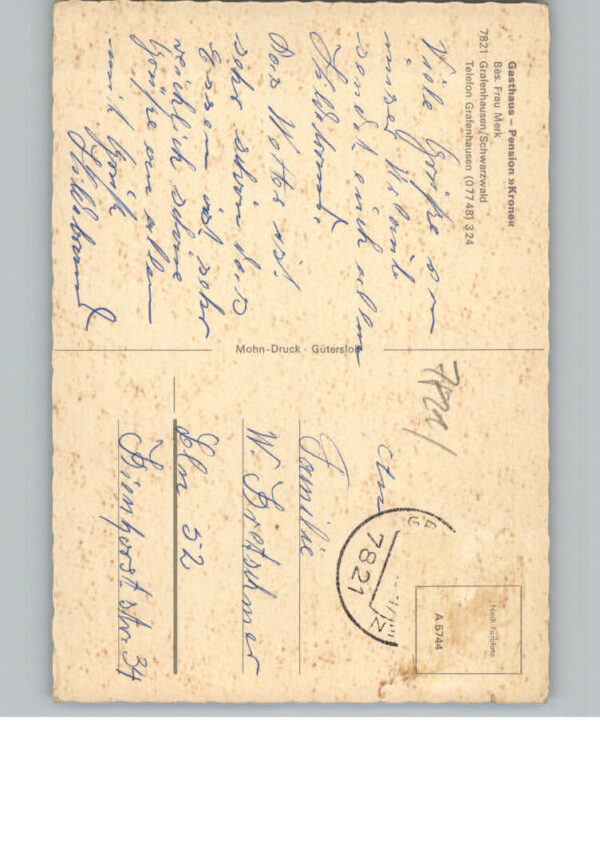 Gasthaus – Pension »Krone«
Bes. Frau Merk
7821 Grafenhausen/Schwarzwald
Telefon Grafenhausen (07748) 324
Viele Grüße von
unser Urlaub
sendet euch allen
Hildebrandt.
Das Wetter ist
sehr schön das
Essen ist sehr
reichlich schöne
Grüße an allen
mit Gruß
Hildebrandt
Mohn-Druck · Gütersloh
7821
An
7821
Familie
W. Bretschmer
Eln 52
Bienhorststr 34
Nach Farbfoto
A 5744